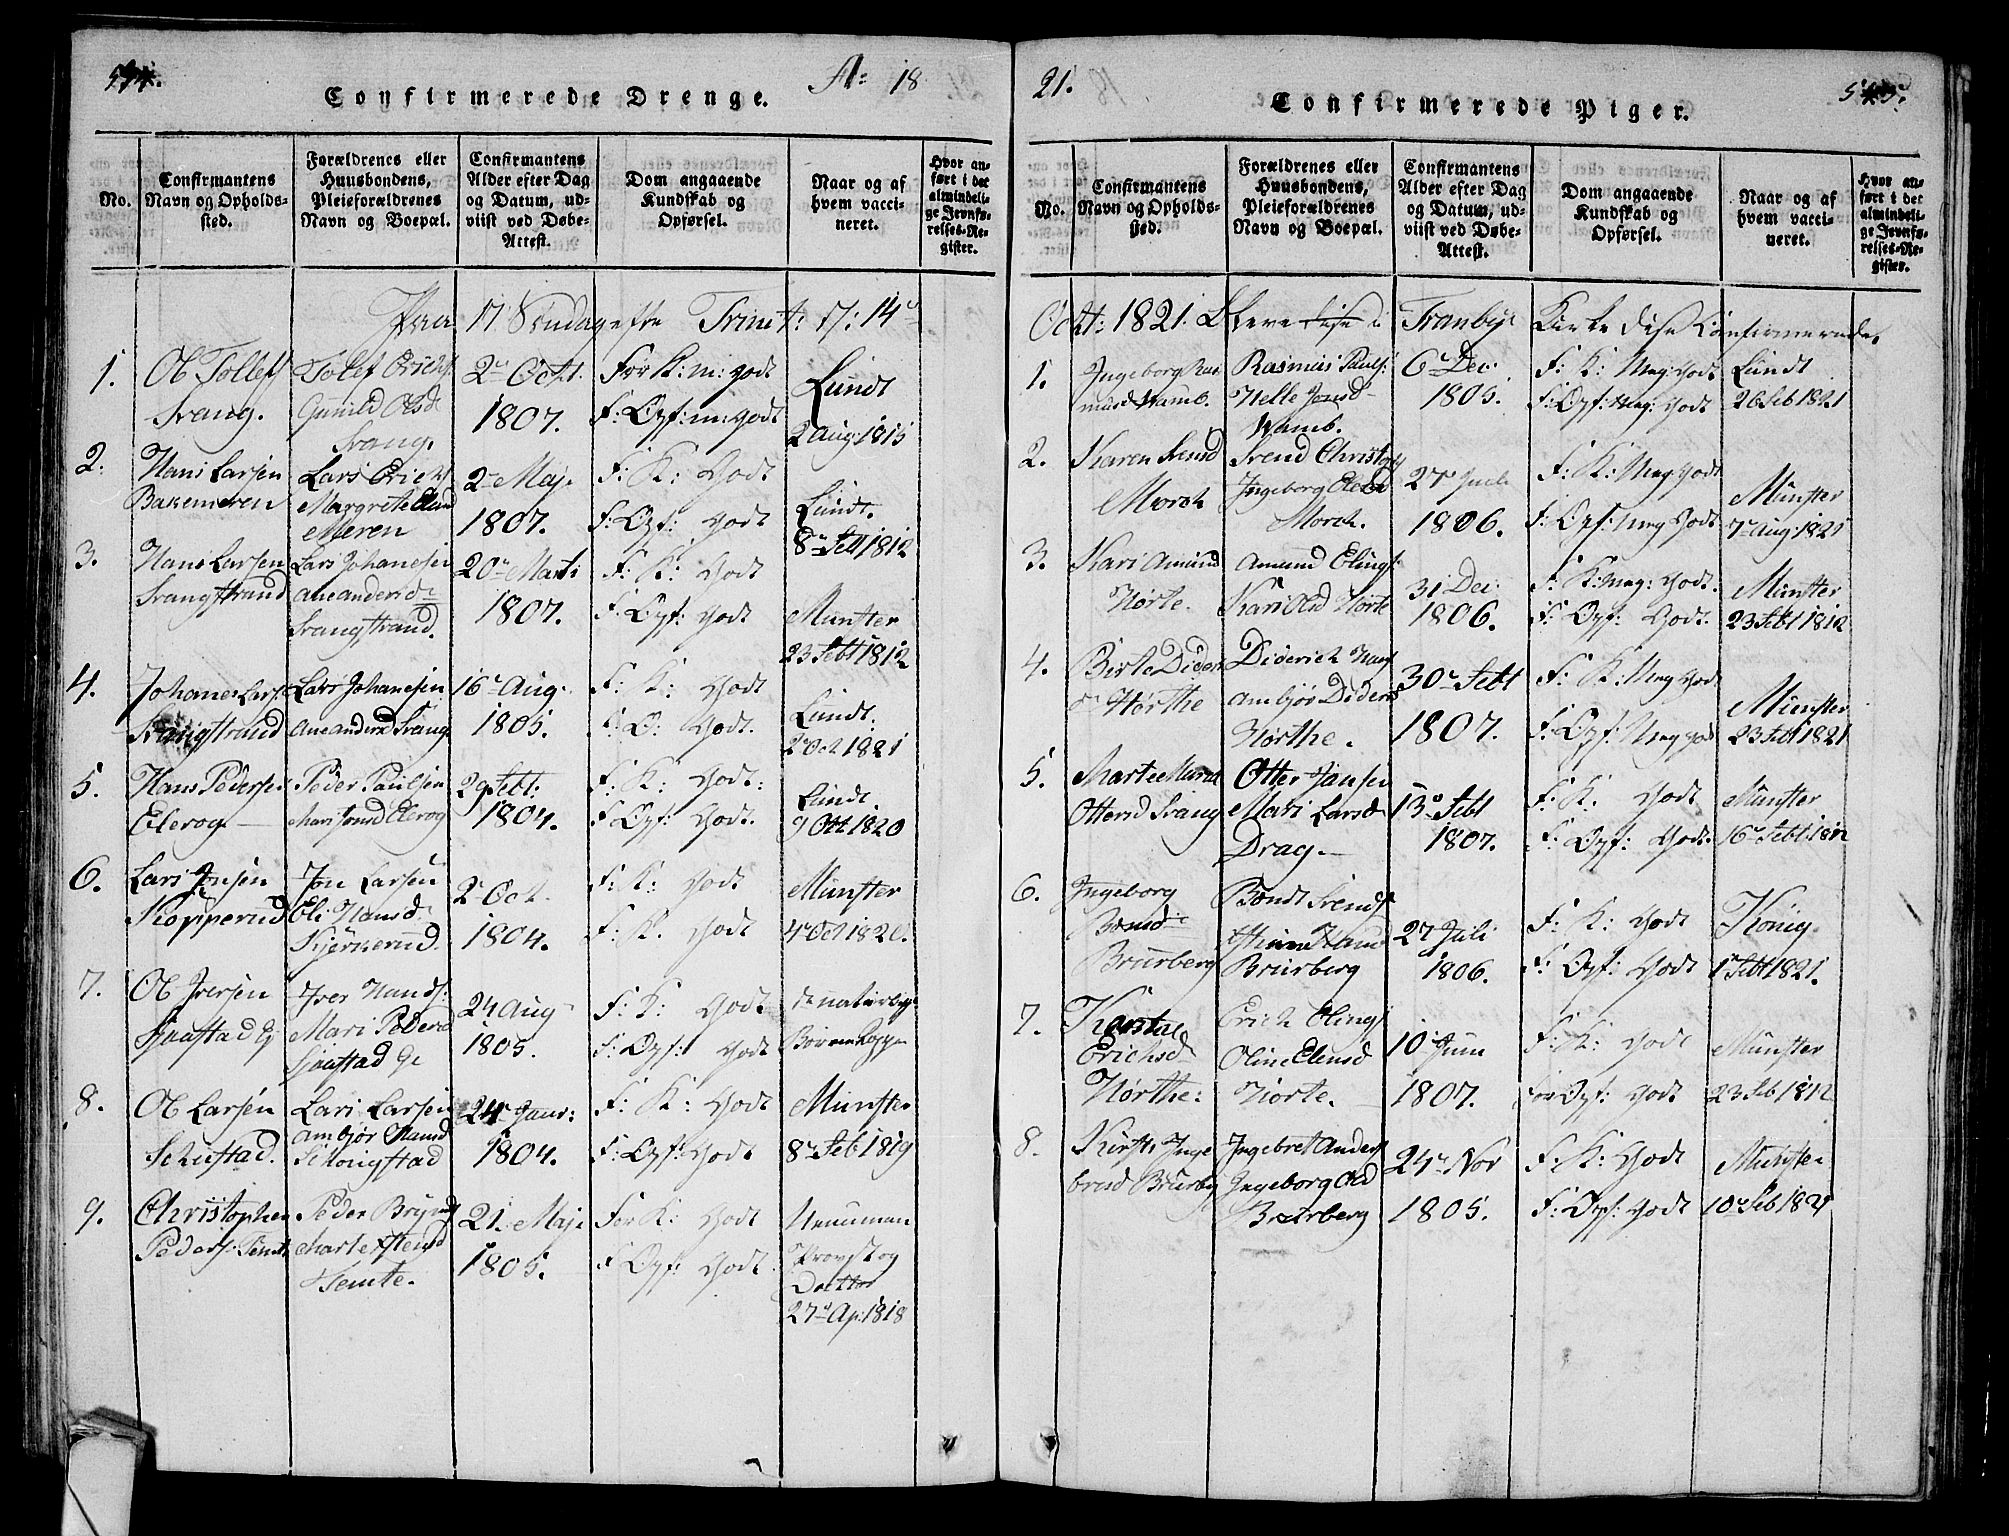 Ao 18
Confirmerede Drenge.
No.
Confirmantens
Navn og Opholds-
sted.
Forældrenes eller
Huusbondens,
Pleieforældrenes
Navn og Boepæl.
Confirmantens
Alder efter Dag
og Datum, ud-
viist ved Døbe-
Attest.
Dom angaaende
Kundskab og
Opførsel.
Naar og af
hvem vacci-
neret.
Hvor an-
ført i det
almindeli-
ge Jevnfø-
relses-Re-
gister.
17 Søndag efter Trinit: 14de
1.
Ol Tollefs
Svang.
Tolef Erichs
Gunild Olsd
Svang.
2de Octb.
1807.
For K: m: godt
F: Opf: m: godt
Lundt
2 Aug: 1815
2.
Hans Larsen
Bakemeren
Lars Erichs
Margrete
Meren
2de Maj.
1807.
F: K: Godt
F: Opf: Godt
Lundt.
8de Sebt 1812
3.
Hans Larsen
Svangstrand
Lars Johanesen
Ane Andersd
Svangstrand.
20de Marti
1807.
F: K: Godt
F: Opf: Godt
Munster
23 Sebt 1812
4.
Johanes Lars
Svangstrand
Lars Johanesen
Ane Andersd Svang
16de Aug.
1805.
F: K: Godt
F: O: Godt.
Lundt.
2de Oct 1821
5.
Hans Pedersen
Elerog
Peder Paulsen
Mari Elerog
29 Sebt:
1804.
F: K: Godt:
F: Opf: Godt.
Lundt.
9 Oct 1820
6.
Lars Jonsen
Kopperud
Jon Larsen
Eli Hansd.
Kjørkerud.
2de Oct.
1804.
F: K: Godt
F: K. Godt
Munster
4de Oct 1820.
7.
Ol Iversen
Gjaastad Ej
Iver Hans:
Mari Pedersd
Gjaastad Ge
24 Aug
1805.
F: K: Godt
F: Opf: Godt
de naturlige
Børnekopper
8.
Ol Larsen
Schustad.
Lars Larsen
Ambjør Hansd
24de Janr:
1804.
F: K: Godt
F: Opf: Godt
Munster
8de Feb 1819
9.
Christopher
Peders:
Peder
Marte Stensd
21. Maj.
1805.
For K: Godt
F: Opf: Godt.
Neuman
Provst og
Docttor
27de Ap: 1818
21.
Confirmerede Piger.
No.
Confirmantens
Navn og Opholds-
sted.
Forældrenes eller
Huusbondens,
Pleieforældrenes
Navn og Boepæl.
Confirmantens
Alder efter Dag
og Datum, ud-
viist ved Døbe-
Attest.
Dom angaaende
Kundskab og
Opførsel.
Naar og af
hvem vacci-
neret.
Hvor an-
ført i det
almindeli-
ge Jevnfø-
relses-Re-
gister.
Octt: 1821. Bleve disse i Tranbye Kirke disse Confirmerede.
1.
Ingeborg Ras
musd Wamb.
Rasmus Pauls:
Helle Jensd
Wamb.
6de Dec.
1805.
F: K: Meg: Godt
F: Opf: Meg: Godt
Lundt
26 Feb 1821
2.
Karen Svensd
Morch
Svend Christoph
Ingeborg
Morch.
27de
1806.
F: K: Meg Godt
F: Opf: Meg Godt
Munster
7de Aug: 1821
3.
Kari Amund
Hørte.
Amund Elings
Kari Olsd Hørte
31 Dec.
1806.
F: K: Meg: Godt.
F: Opf: Godt:
Munster
23 Sebt 1812
4.
Birte Diderc
Hørthe
Diderich Hans
Ambjør Diders
Hørthe.
30de Sebt
1807.
F: K: Meg Godt
F: Opf: Meg godt
Munster
23 Sebt 1821
5.
Marte Maria
Ottersd Svang
Otter Jansen
Mari Larsd
Drag.
13de Sebt
1807.
F: K. Godt
F: Opf: Godt.
Munster
16de Sebt: 1812
6.
Ingeborg
Brurberg
Bendt Svends
Brurberg
27 Juli
1806.
F: K: Godt
F: Opf: Godt
König
1de Sebt 1821.
7.
Erichsd
Hørthe:
Erich Elings
Oline Elensd
Hørte.
10de Juni
1807.
F: K: Godt
For Opf: Godt
Munster
23 Feb 1812
8.
Kirsti Inge
bresd Brurby
Ingebret Anders
Ingeborg Olsd
Brurberg
24de Nov
1805.
F: K: Godt
F: Opf: Godt
Munster
10de Feb 1821